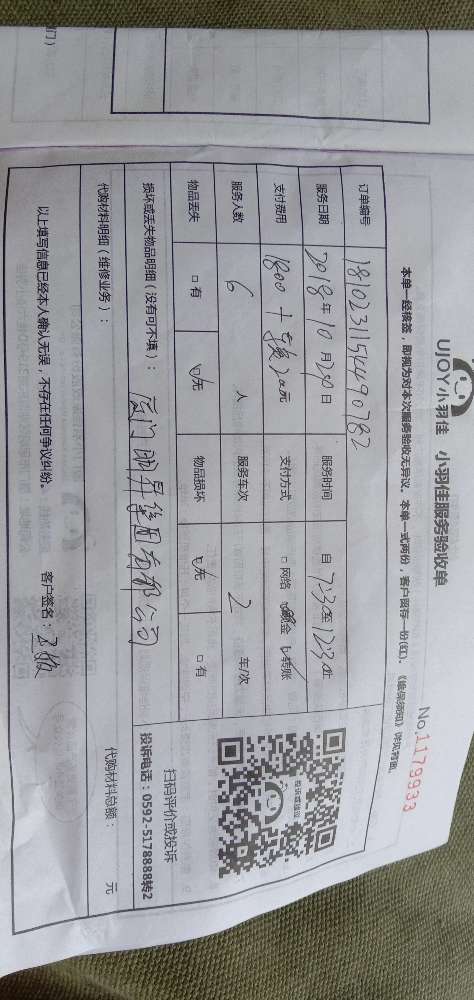 UJOY小羽佳 小羽佳服务验收单
No.1179933
本单一经核签，即视为对本次服务验收无异议。本单一式两份，客户留存一份(红)。《确保须知》详见背面。
订单编号 1810231154490782
服务日期 2018年10月24日 服务时间 自7:30至12:30止
支付费用 1800+ 元 支付方式 □网络 现金 转账
服务人数 6 人 服务车次 2 车/次
物品丢失 □有 无 物品损坏 无 □有
损坏或丢失物品明细（没有可不填）：
厦门 集团有限公司
投诉或建议
扫码评价或投诉
投诉电话：0592-5178888转2
代购材料明细（维修业务）： 代购材料总额： 元
以上填写信息已经本人确认无误，不存在任何争议纠纷。 客户签名：